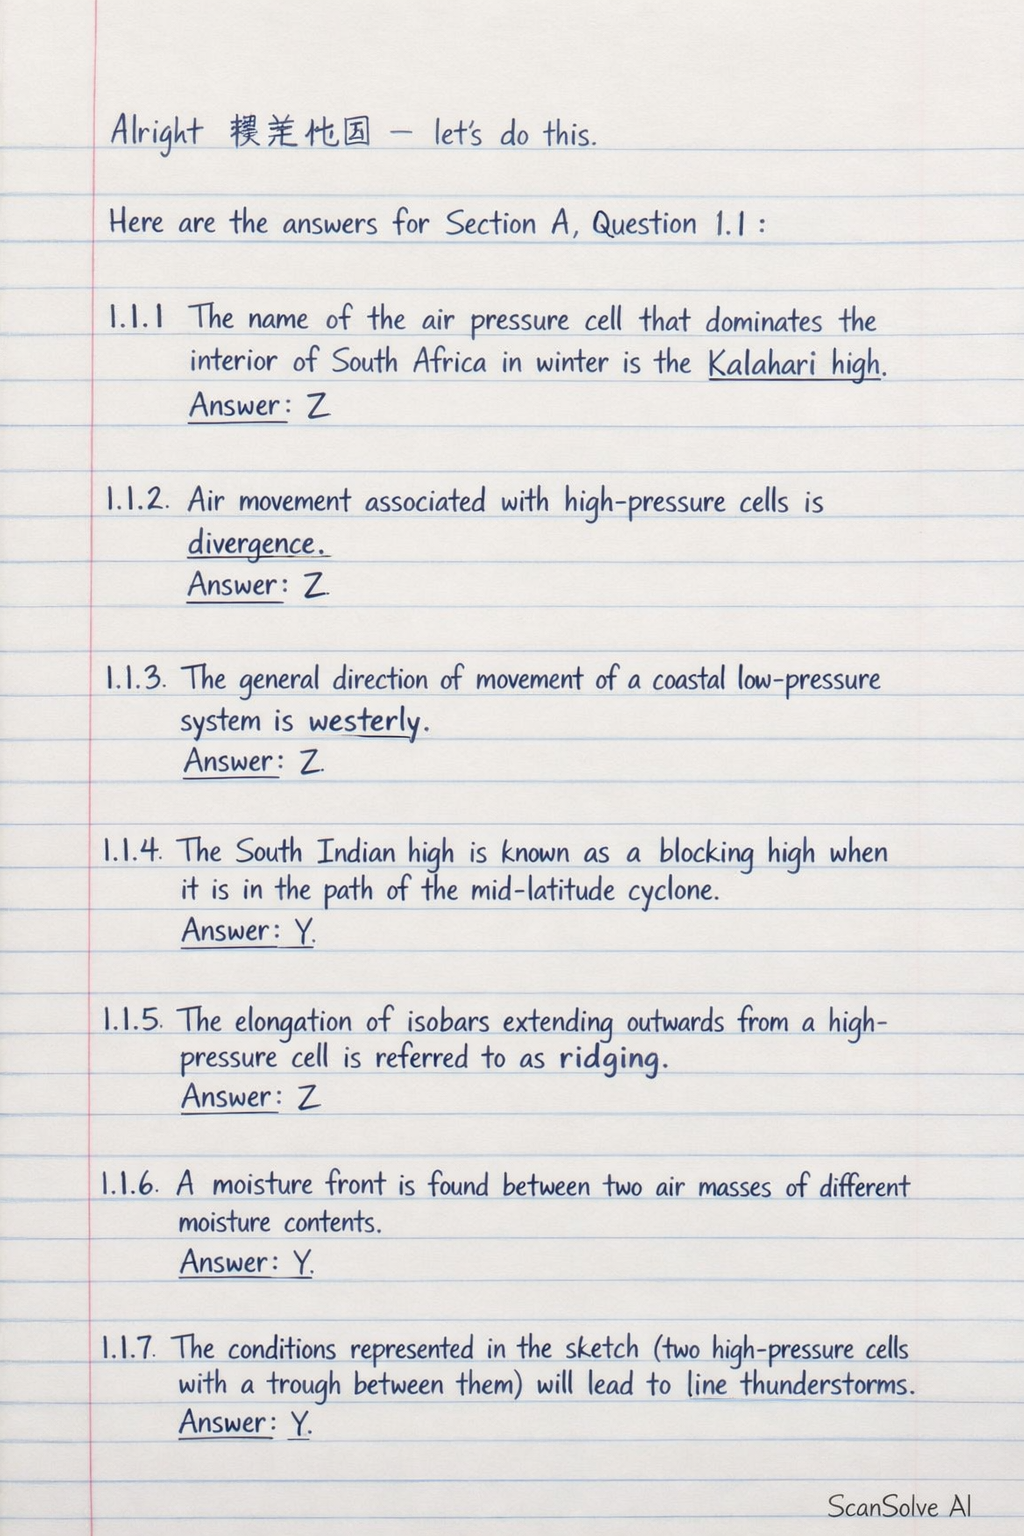 Alright 国 — let's do this.
Here are the answers for Section A, Question 1.1 :
1.1.1 The name of the air pressure cell that dominates the
interior of South Africa in winter is the Kalahari high.
Answer: Z
1.1.2. Air movement associated with high-pressure cells is
divergence.
Answer: Z.
1.1.3. The general direction of movement of a coastal low-pressure
system is westerly.
Answer: Z.
1.1.4. The South Indian high is known as a blocking high when
it is in the path of the mid-latitude cyclone.
Answer: Y.
1.1.5. The elongation of isobars extending outwards from a high-
pressure cell is referred to as ridging.
Answer: Z
1.1.6. A moisture front is found between two air masses of different
moisture contents.
Answer: Y.
1.1.7. The conditions represented in the sketch (two high-pressure cells
with a trough between them) will lead to line thunderstorms.
Answer: Y.
ScanSolve AI